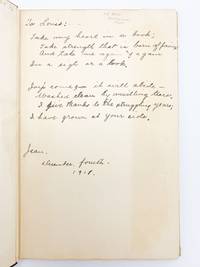 To Louis:-
Take my heart in a book;
Take strength that is born of
And take me again & again
In a sigh or a look
it will abide -
Washed clean by unwilling tears,
I give thanks to the struggling years,
I have grown at your side.
Jean.
fourth
1911.